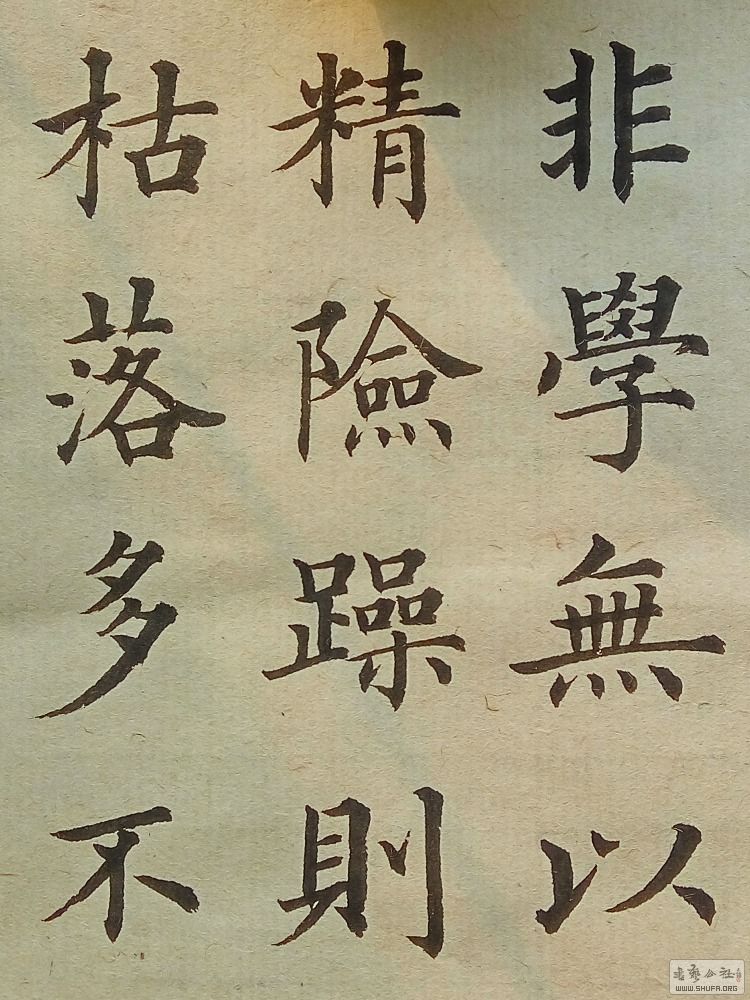 非學無以
精險躁則
枯落多不
書藝公社
WWW.SHUFA.ORG